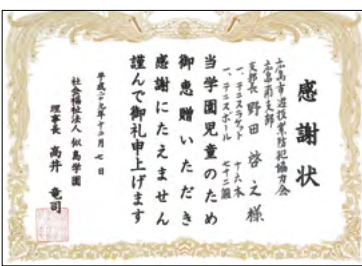 感謝状
広島市遊技業防犯協力会
広島南支部
支部長 野田啓之様
一、テニスラケット 十六本
一、テニスボール 七十二個
当学園児童のため
御恵贈いただき
感謝にたえません
謹んで御礼申上げます
平成二十九年十二月七日
社会福祉法人 似島学園
理事長 高井竜司